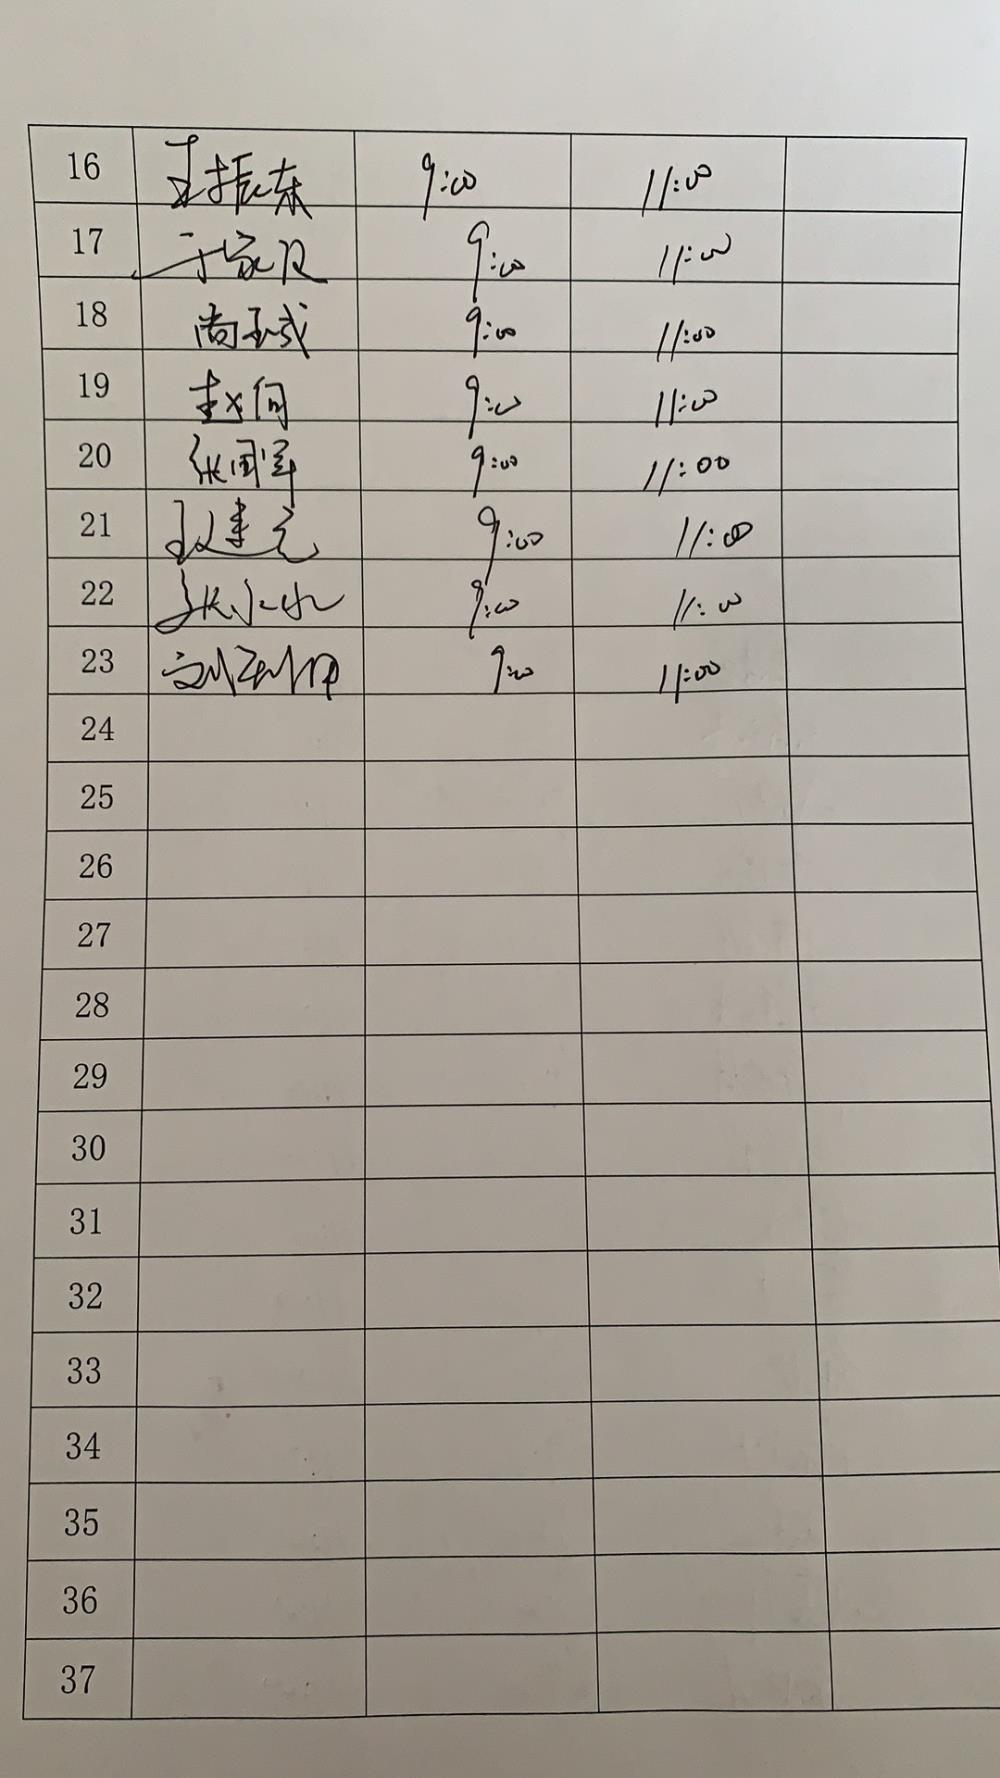 16 王振东 9:00 11:00
17 于家 9:00 11:00
18 尚玉成 9:00 11:00
19 9:00 11:00
20 张国军 9:00 11:00
21 赵建元 9:00 11:00
22 张小水 9:00 11:00
23 刘 9:00 11:00
24
25
26
27
28
29
30
31
32
33
34
35
36
37